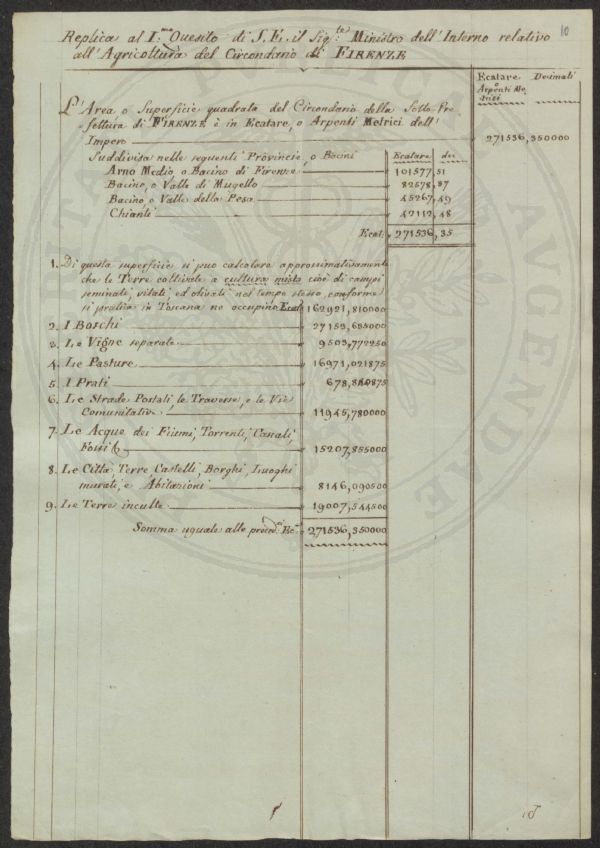 10
Replica al I.mo Quesito di S. E. il Sig.re Ministro dell'Interno relativo
all'Agricoltura del Circondario di FIRENZE
Ecatare Decimali
o
Arpenti Me
trici
L'Area o Superficie quadrata del Circondario della Sotto Pre
fettura di FIRENZE è in Ecatare, o Arpenti Metrici dell'
Impero 271536,350000
Suddivisa nelle seguenti Provincie, o Bacini Ecatare dei
Arno Medio o Bacino di Firenze 101577,51
Bacino, o Valle di Mugello 82578,87
Bacino, o Valle della Pesa 45267,49
Chianti 42112,48
Ecat: 271536,35
1. Di questa superficie si può calcolare approssimativamente
che le Terre coltivate a cultura mista cioè di campi
seminati, vitati, ed olivati nel tempo stesso, conforme
si pratica in Toscana ne occupino Ecat. 162921,810000
2. I Boschi 27159,695000
3. Le Vigne separate 9503,772250
4. Le Pasture 16971,021875
5. I Prati 678,840875
6. Le Strade Postali, le Traverse, e le Vie
Comunitative 11945,780000
7. Le Acque dei Fiumi, Torrenti, Canali,
Fossi 15207,855000
8. Le Città, Terre, Castelli, Borghi, Luoghi
murati, e Abitazioni 8146,090500
9. Le Terre inculte 19007,544500
Somma uguale alle preced.ti Ec.e 271536,350000